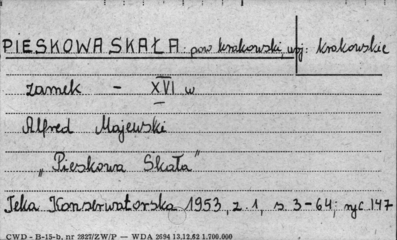 PIESKOWA SKAŁA: pow. krakowski, woj: krakowskie
zamek - XVI w
Alfred Majewski
"Pieskowa Skała"
Teka Konserwatorska 1953, z. 1, s. 3-64; ryc 147
CWD - B-15-b, nr 2827/ZW/P — WDA 2694 13.12.62 1.700.000